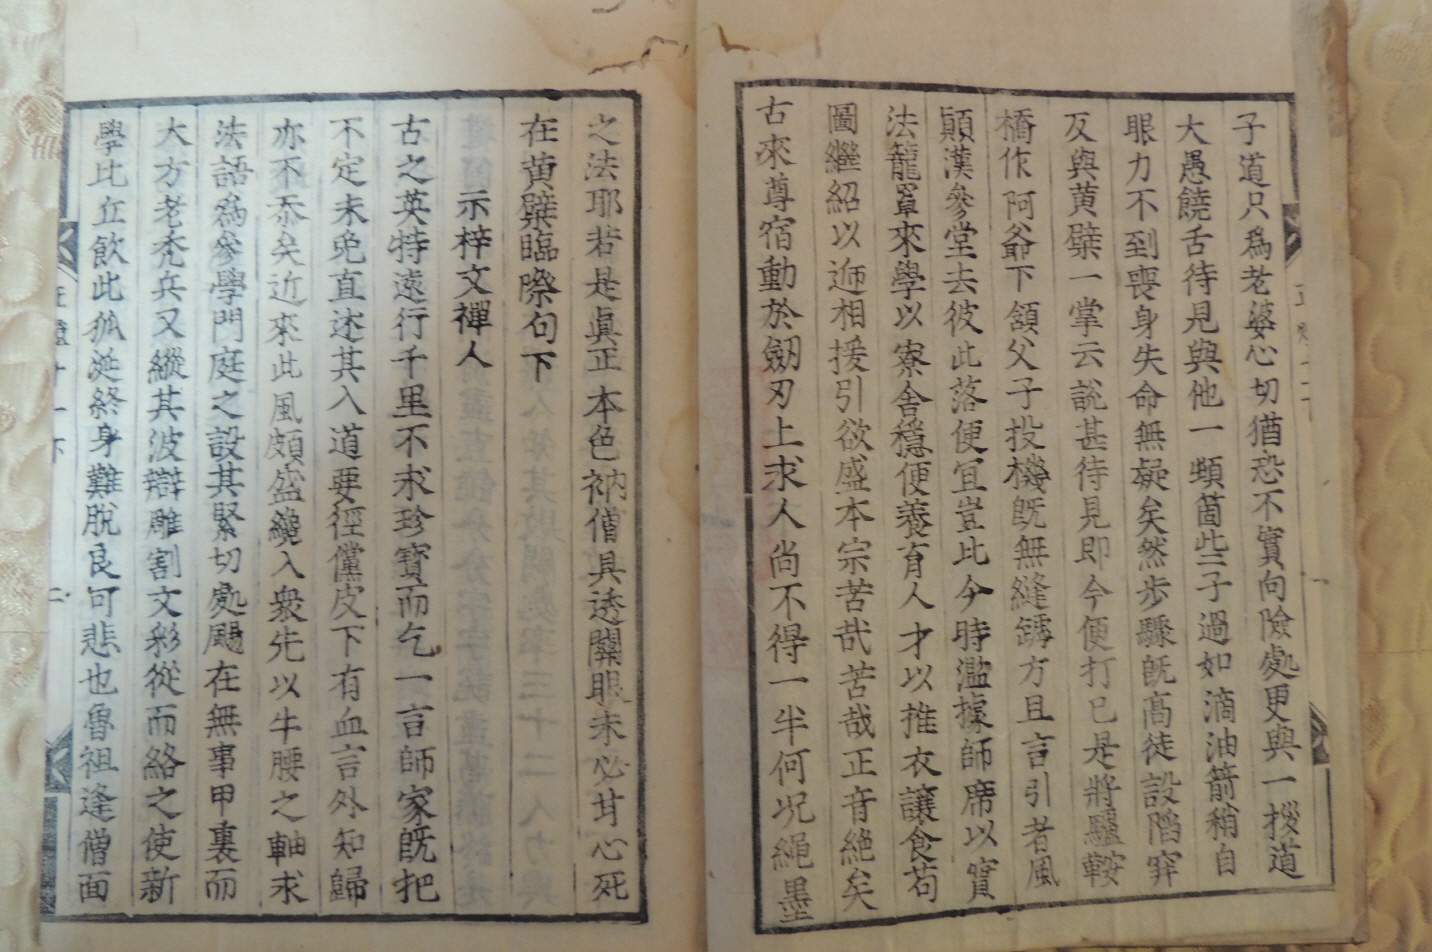 子道只爲老婆心切猶恐不實向險處更與一拶道
大愚饒舌待見與他一頓箇些子過如滴油箭稍自
眼力不到喪身失命無疑矣然步驟旣高徒設陷穽
反與黄檗一掌云說甚待見即今便打已是將驢鞍
橋作阿爺下頷父子投機旣無縫罅方且言引者風
顛漢參堂去彼此落便宜豈比今時濫據師席以實
法籠罩來學以寮舍穩便養育人才以推衣讓食苟
圖繼紹以迊相援引欲盛本宗苦哉苦哉正音絶矣
古來尊宿動於劒刃上求人尚不得一半何况繩墨
之法耶若是眞正本色衲僧具透關眼未必甘心死
在黄檗臨際句下
示梓文禪人
古之英特遠行千里不求珍寶而乞一言師家旣把
不定未免直述其入道要徑儻皮下有血言外知歸
亦不忝矣近來此風頗盛纔入衆先以牛腰之軸求
法語爲參學門庭之設其緊切處颺在無事甲裏而
大方老禿兵又縱其波辯雕割文彩從而絡之使新
學比丘飲此狐涎終身難脫良可悲也魯祖逢僧面
十一下
二